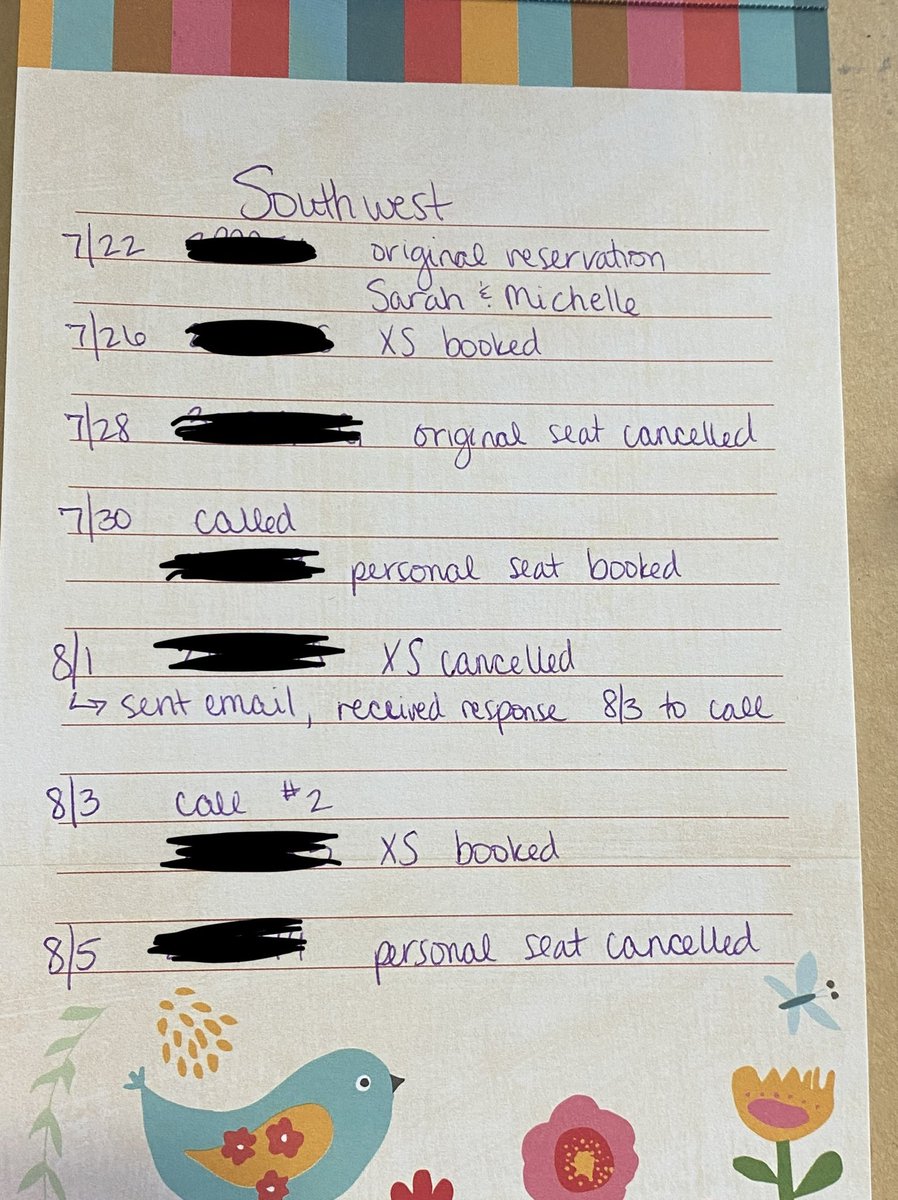 Southwest
7/22 original reservation
Sarah & Michelle
7/26 XS booked
7/28 original seat cancelled
7/30 called
personal seat booked
8/1 XS cancelled
↳ sent email, received response 8/3 to call
8/3 call #2
XS booked
8/5 personal seat cancelled